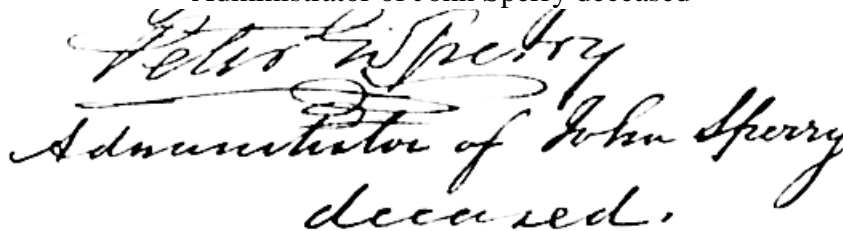 Administrator of John Sperry deceased
Peter W Sperry
Administrator of John Sperry
deceased.